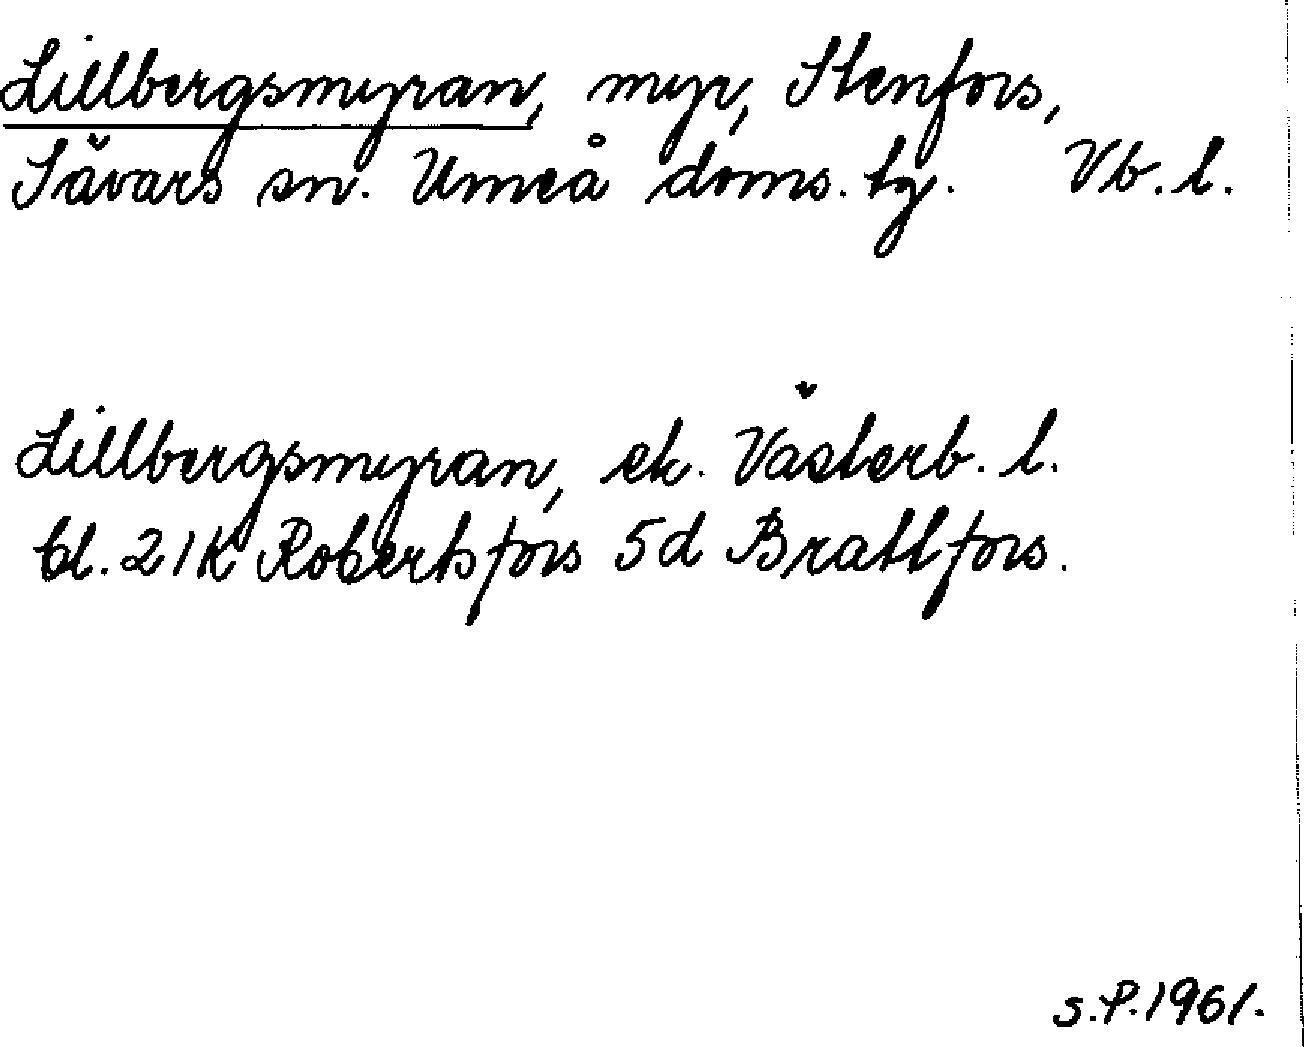 Lillbergsmyran, myr, Stenfors,
Sävars sn. Umeå doms. tg. Vb. l.
Lillbergsmyran, ek. Västerb. l.
bl. 21K Robertsfors 5d Brattfors.
S.P. 1961.